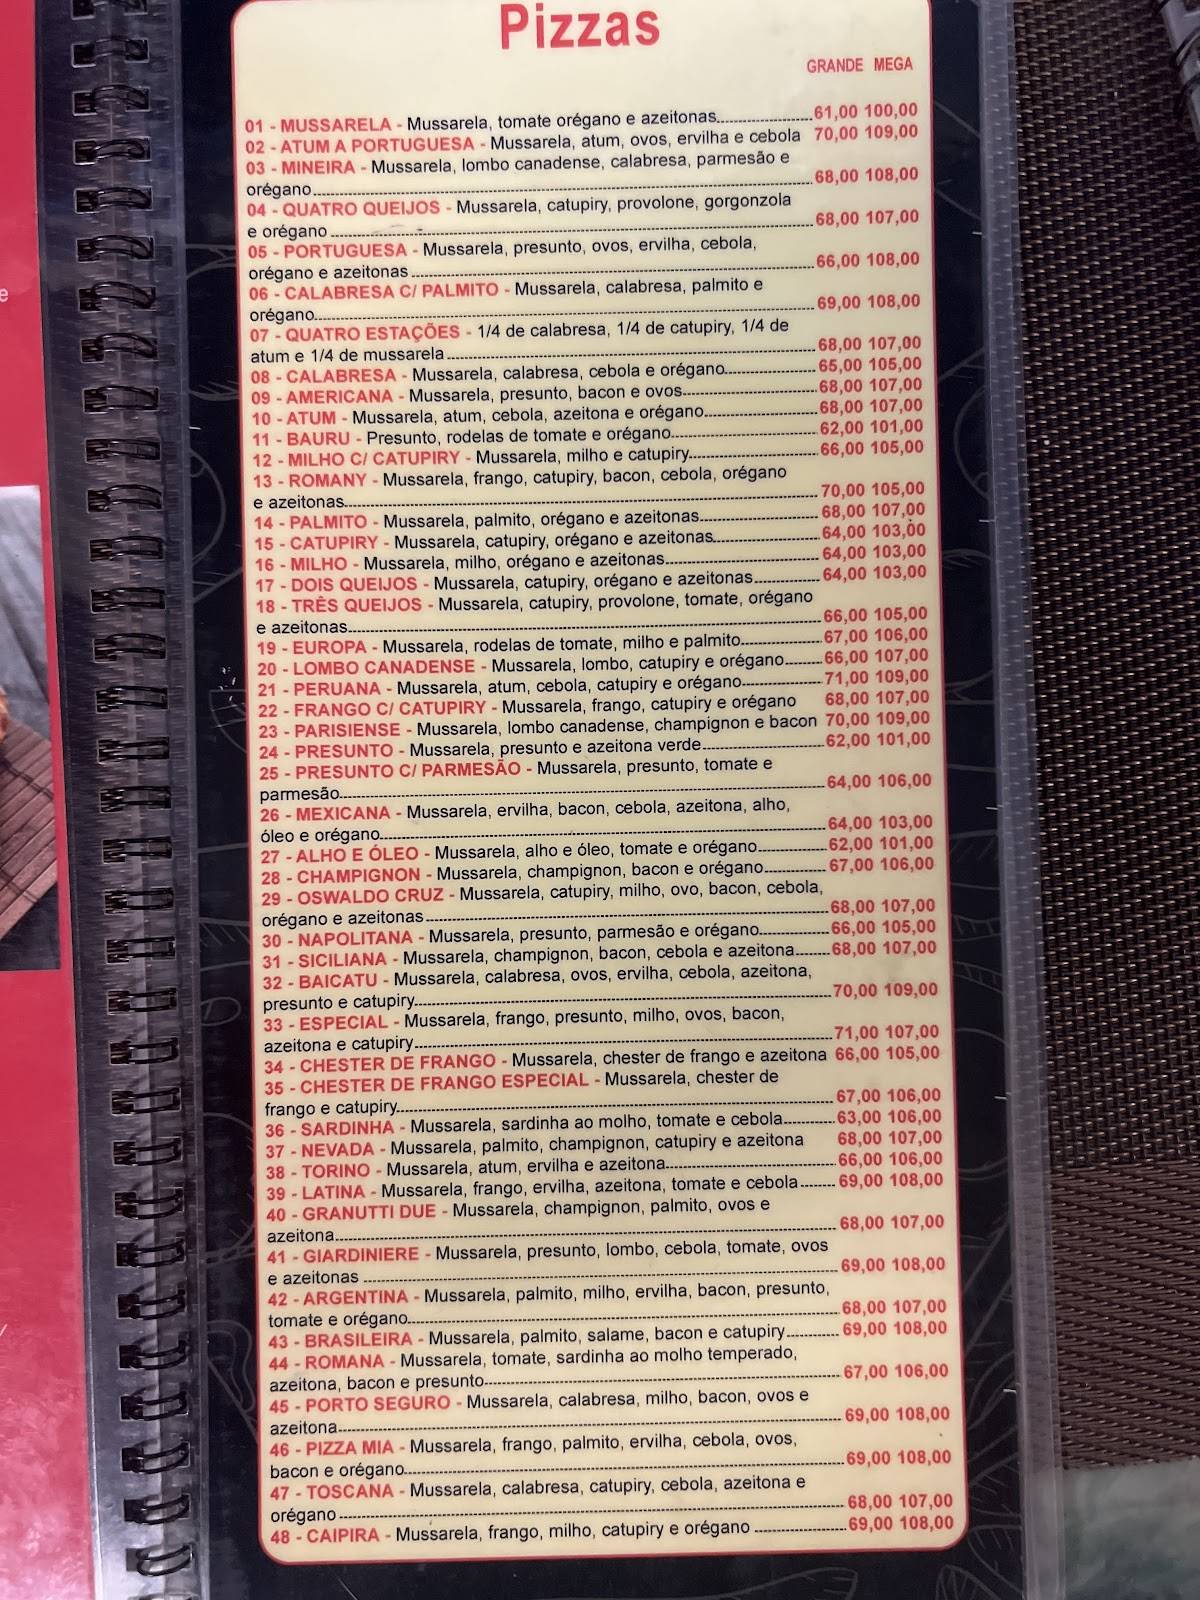 Pizzas
GRANDE MEGA
01 - MUSSARELA - Mussarela, tomate orégano e azeitonas 61,00 100,00
02 - ATUM A PORTUGUESA - Mussarela, atum, ovos, ervilha e cebola 70,00 109,00
03 - MINEIRA - Mussarela, lombo canadense, calabresa, parmesão e
orégano 68,00 108,00
04 - QUATRO QUEIJOS - Mussarela, catupiry, provolone, gorgonzola
e orégano 68,00 107,00
05 - PORTUGUESA - Mussarela, presunto, ovos, ervilha, cebola,
orégano e azeitonas 66,00 108,00
06 - CALABRESA C/ PALMITO - Mussarela, calabresa, palmito e
orégano 69,00 108,00
07 - QUATRO ESTAÇÕES - 1/4 de calabresa, 1/4 de catupiry, 1/4 de
atum e 1/4 de mussarela 68,00 107,00
08 - CALABRESA - Mussarela, calabresa, cebola e orégano 65,00 105,00
09 - AMERICANA - Mussarela, presunto, bacon e ovos 68,00 107,00
10 - ATUM - Mussarela, atum, cebola, azeitona e orégano 68,00 107,00
11 - BAURU - Presunto, rodelas de tomate e orégano 62,00 101,00
12 - MILHO C/ CATUPIRY - Mussarela, milho e catupiry 66,00 105,00
13 - ROMANY - Mussarela, frango, catupiry, bacon, cebola, orégano
e azeitonas 70,00 105,00
14 - PALMITO - Mussarela, palmito, orégano e azeitonas 68,00 107,00
15 - CATUPIRY - Mussarela, catupiry, orégano e azeitonas 64,00 103,00
16 - MILHO - Mussarela, milho, orégano e azeitonas 64,00 103,00
17 - DOIS QUEIJOS - Mussarela, catupiry, orégano e azeitonas 64,00 103,00
18 - TRÊS QUEIJOS - Mussarela, catupiry, provolone, tomate, orégano
e azeitonas 66,00 105,00
19 - EUROPA - Mussarela, rodelas de tomate, milho e palmito 67,00 106,00
20 - LOMBO CANADENSE - Mussarela, lombo, catupiry e orégano 66,00 107,00
21 - PERUANA - Mussarela, atum, cebola, catupiry e orégano 71,00 109,00
22 - FRANGO C/ CATUPIRY - Mussarela, frango, catupiry e orégano 68,00 107,00
23 - PARISIENSE - Mussarela, lombo canadense, champignon e bacon 70,00 109,00
24 - PRESUNTO - Mussarela, presunto e azeitona verde 62,00 101,00
25 - PRESUNTO C/ PARMESÃO - Mussarela, presunto, tomate e
parmesão 64,00 106,00
26 - MEXICANA - Mussarela, ervilha, bacon, cebola, azeitona, alho,
óleo e orégano 64,00 103,00
27 - ALHO E ÓLEO - Mussarela, alho e óleo, tomate e orégano 62,00 101,00
28 - CHAMPIGNON - Mussarela, champignon, bacon e orégano 67,00 106,00
29 - OSWALDO CRUZ - Mussarela, catupiry, milho, ovo, bacon, cebola,
orégano e azeitonas 68,00 107,00
30 - NAPOLITANA - Mussarela, presunto, parmesão e orégano 66,00 105,00
31 - SICILIANA - Mussarela, champignon, bacon, cebola e azeitona 68,00 107,00
32 - BAICATU - Mussarela, calabresa, ovos, ervilha, cebola, azeitona,
presunto e catupiry 70,00 109,00
33 - ESPECIAL - Mussarela, frango, presunto, milho, ovos, bacon,
azeitona e catupiry 71,00 107,00
34 - CHESTER DE FRANGO - Mussarela, chester de frango e azeitona 66,00 105,00
35 - CHESTER DE FRANGO ESPECIAL - Mussarela, chester de
frango e catupiry 67,00 106,00
36 - SARDINHA - Mussarela, sardinha ao molho, tomate e cebola 63,00 106,00
37 - NEVADA - Mussarela, palmito, champignon, catupiry e azeitona 68,00 107,00
38 - TORINO - Mussarela, atum, ervilha e azeitona 66,00 106,00
39 - LATINA - Mussarela, frango, ervilha, azeitona, tomate e cebola 69,00 108,00
40 - GRANUTTI DUE - Mussarela, champignon, palmito, ovos e
azeitona 68,00 107,00
41 - GIARDINIERE - Mussarela, presunto, lombo, cebola, tomate, ovos
e azeitonas 69,00 108,00
42 - ARGENTINA - Mussarela, palmito, milho, ervilha, bacon, presunto,
tomate e orégano 68,00 107,00
43 - BRASILEIRA - Mussarela, palmito, salame, bacon e catupiry 69,00 108,00
44 - ROMANA - Mussarela, tomate, sardinha ao molho temperado,
azeitona, bacon e presunto 67,00 106,00
45 - PORTO SEGURO - Mussarela, calabresa, milho, bacon, ovos e
azeitona 69,00 108,00
46 - PIZZA MIA - Mussarela, frango, palmito, ervilha, cebola, ovos,
bacon e orégano 69,00 108,00
47 - TOSCANA - Mussarela, calabresa, catupiry, cebola, azeitona e
orégano 68,00 107,00
48 - CAIPIRA - Mussarela, frango, milho, catupiry e orégano 69,00 108,00